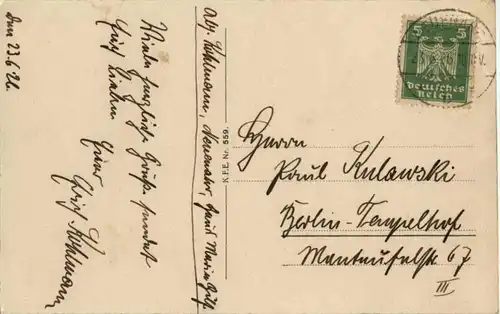 Den 23.6.26.
Viele herzliche Grüße sendet
Euch Lieben
Euer
Kohlmann
Abs. Kohlmann, Neuenahr,
K.F.E. Nr. 559.
5 5
Deutsches
Reich
Herrn
Paul Kulawski
Berlin-Tempelhof
Manteufelstr 67
III